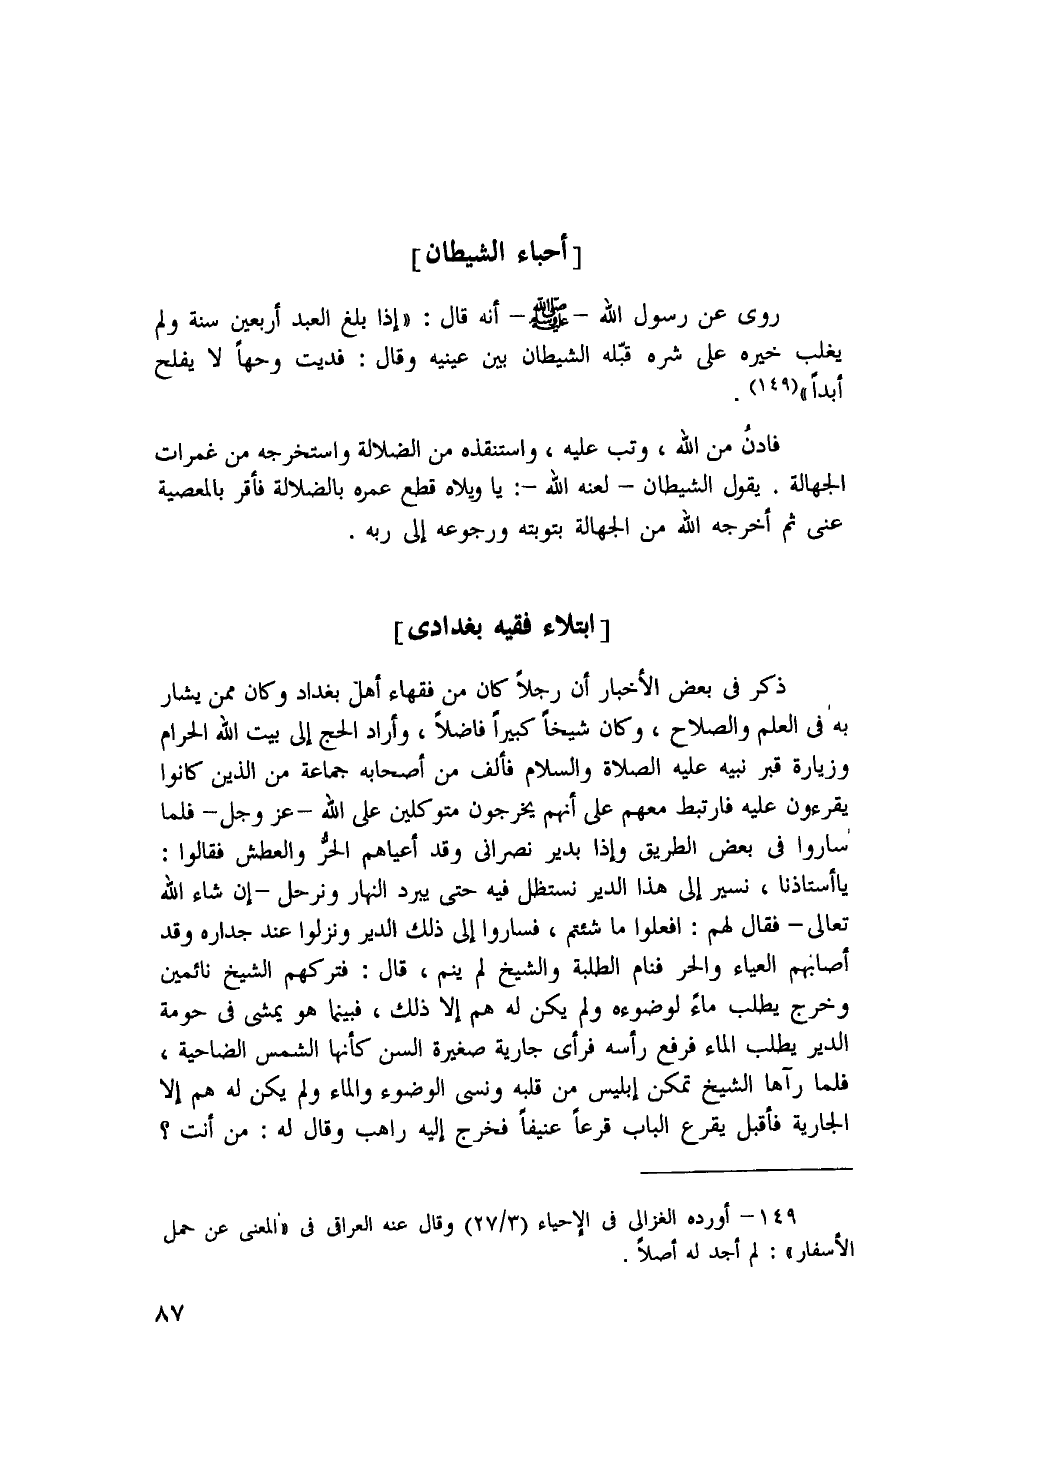 [ أحباء الشيطان ]
روى عن رسول الله – ﷺ – أنه قال : «إذا بلغ العبد أربعين سنة ولم
يغلب خيره على شره قبّله الشيطان بين عينيه وقال : فديت وحهاً لا يفلح
أبداً»(١٤٩) .
فادنُ من الله ، وتب عليه ، واستنقذه من الضلالة واستخرجه من غمرات
الجهالة . يقول الشيطان – لعنه الله –: يا ويلاه قطع عمره بالضلالة فأقر بالمعصية
عنى ثم أخرجه الله من الجهالة بتوبته ورجوعه إلى ربه .
[ ابتلاء فقيه بغدادى ]
ذكر فى بعض الأخبار أن رجلاً كان من فقهاء أهل بغداد وكان ممن يشار
به فى العلم والصلاح ، وكان شيخاً كبيراً فاضلاً ، وأراد الحج إلى بيت الله الحرام
وزيارة قبر نبيه عليه الصلاة والسلام فألف من أصحابه جماعة من الذين كانوا
يقرءون عليه فارتبط معهم على أنهم يخرجون متوكلين على الله –عز وجل– فلما
ساروا فى بعض الطريق وإذا بدير نصرانى وقد أعياهم الحرُّ والعطش فقالوا :
ياأستاذنا ، نسير إلى هذا الدير نستظل فيه حتى يبرد النهار ونرحل –إن شاء الله
تعالى– فقال لهم : افعلوا ما شئتم ، فساروا إلى ذلك الدير ونزلوا عند جداره وقد
أصابهم العياء والحر فنام الطلبة والشيخ لم ينم ، قال : فتركهم الشيخ نائمين
وخرج يطلب ماءً لوضوءه ولم يكن له هم إلا ذلك ، فبينما هو يمشى فى حومة
الدير يطلب الماء فرفع رأسه فرأى جارية صغيرة السن كأنها الشمس الضاحية ،
فلما رآها الشيخ تمكن إبليس من قلبه ونسى الوضوء والماء ولم يكن له هم إلا
الجارية فأقبل يقرع الباب قرعاً عنيفاً فخرج إليه راهب وقال له : من أنت ؟
١٤٩– أورده الغزالى فى الإحياء (٢٧/٣) وقال عنه العراقى فى «المعنى عن حمل
الأسفار» : لم أجد له أصلاً .
٨٧